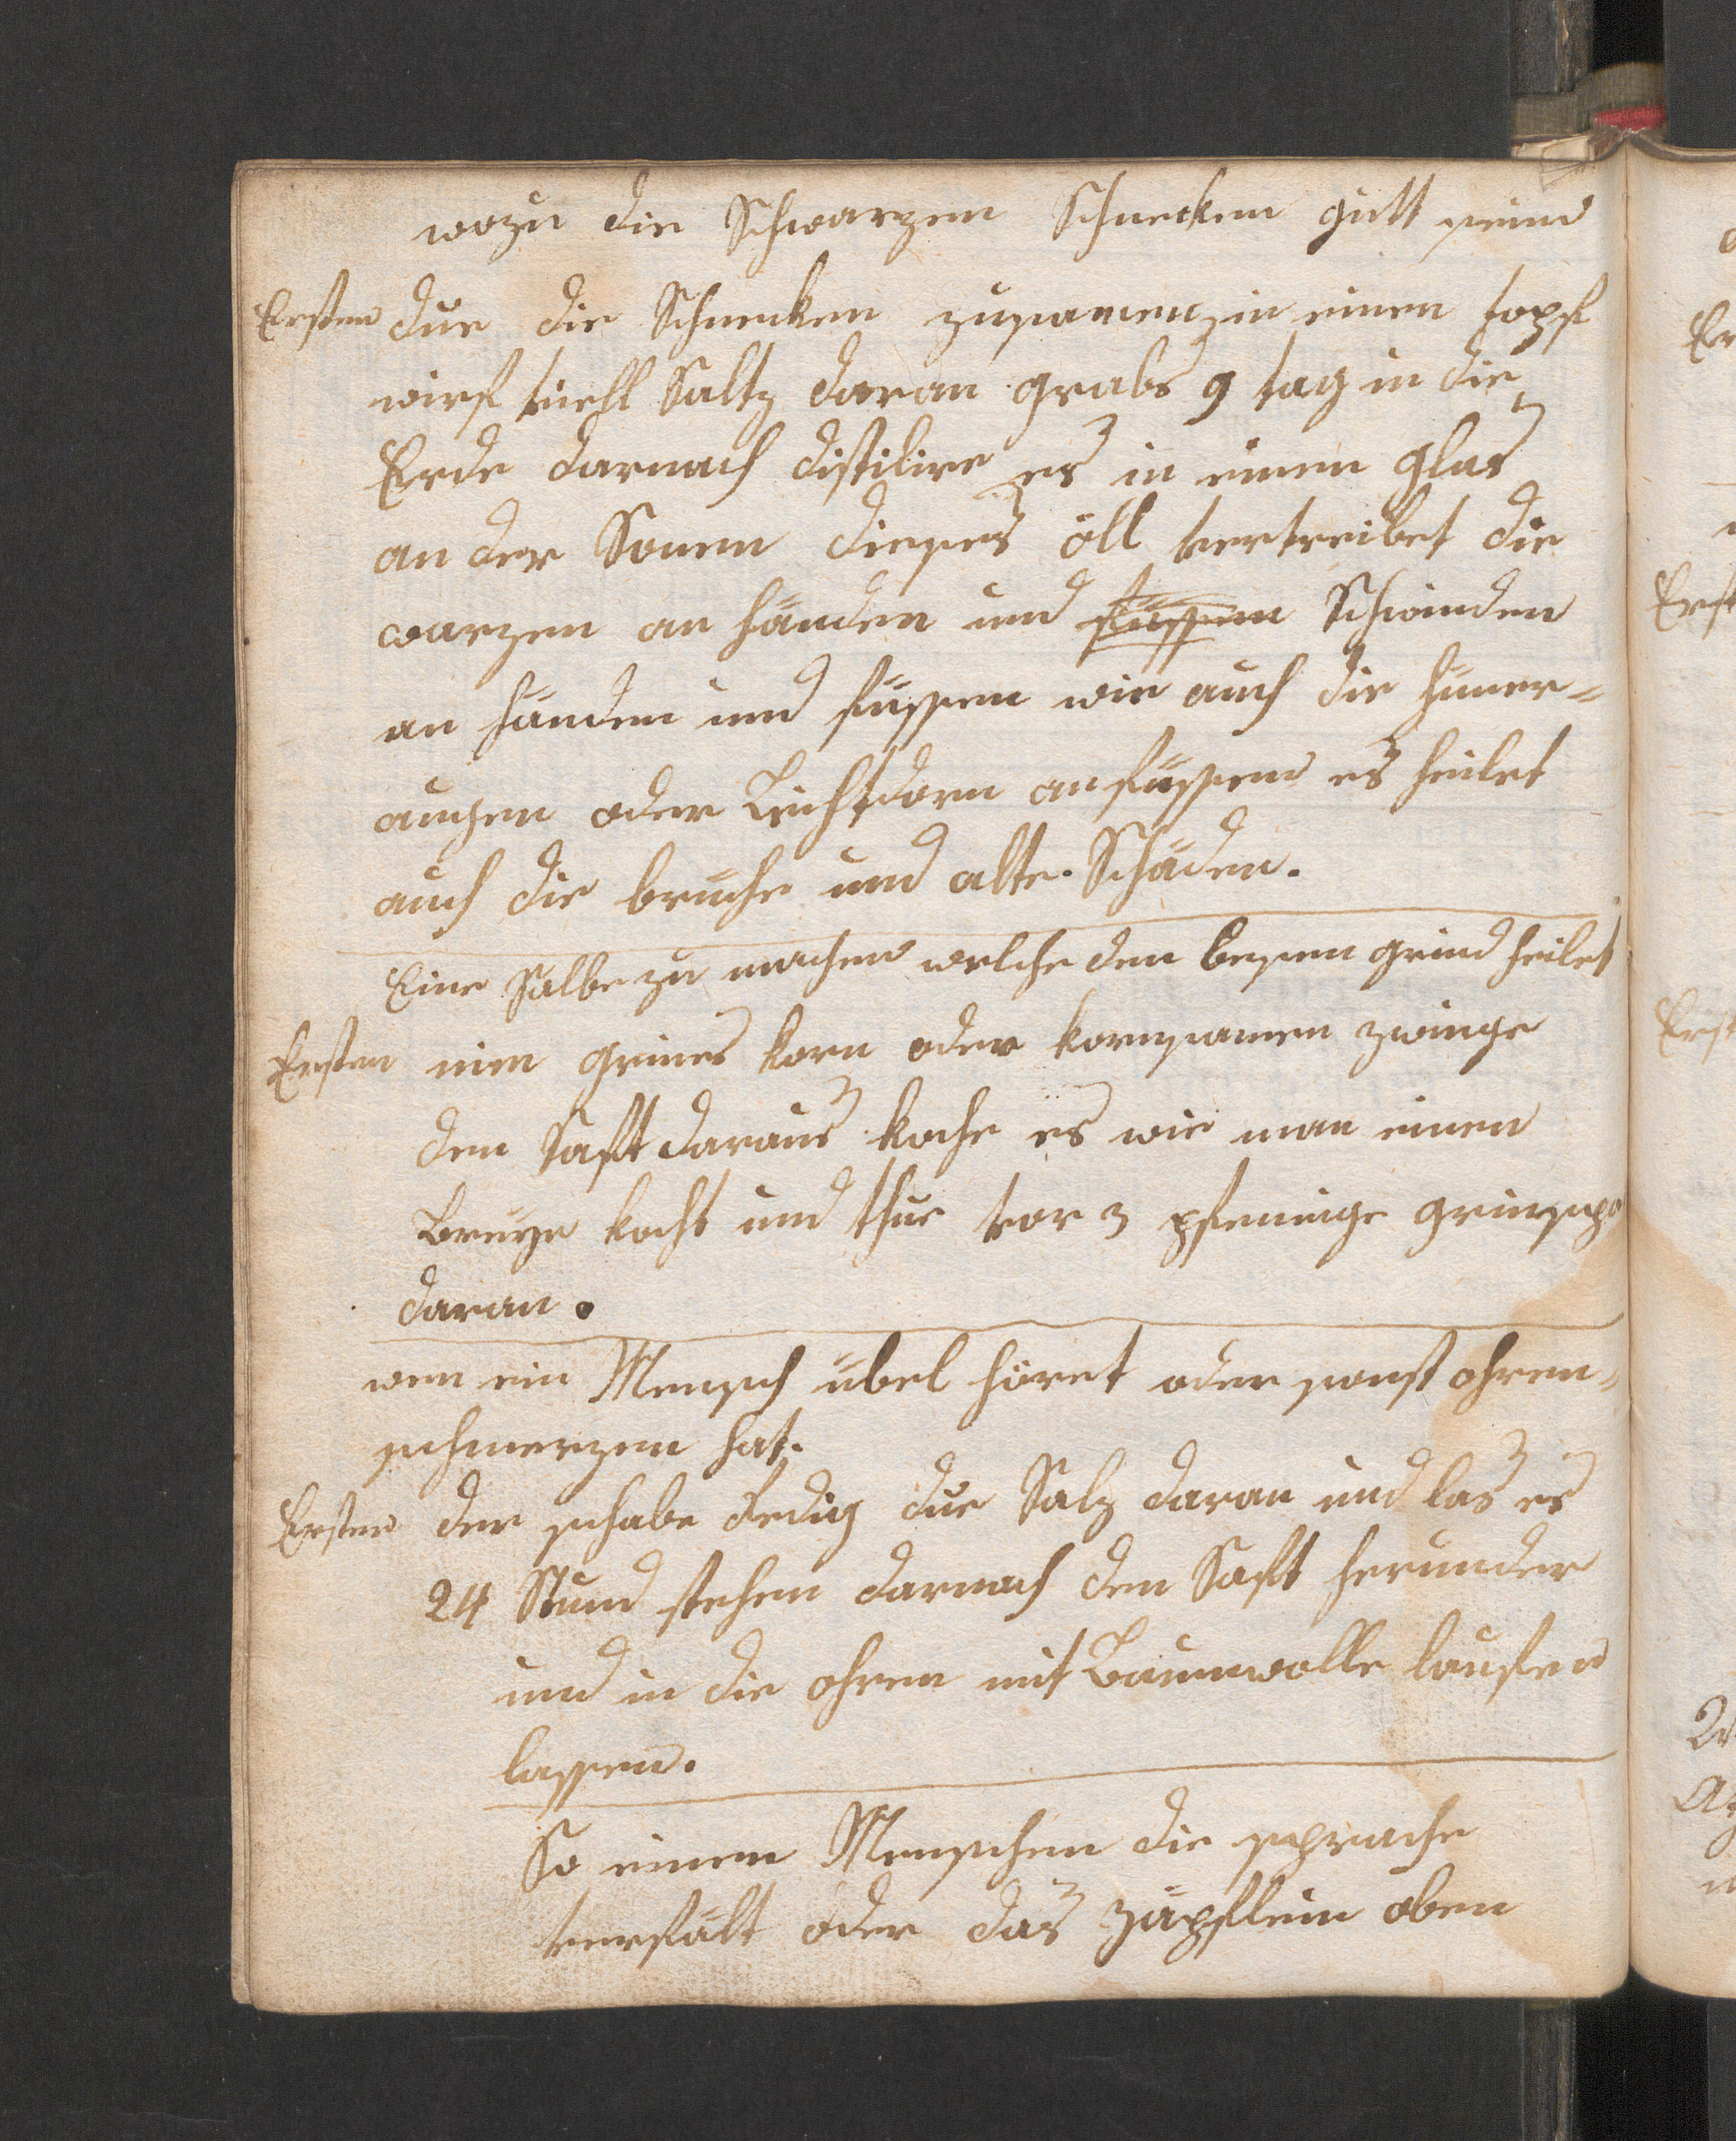 wozu die Schwarzen Schnecken gutt seind
Ersten due die Schnecken zusamen in einen topf
wirf viell Saltz daran grabs 9 tag in die
Erde darnach distilire es in einen glas
an der Sonnen dieses öll vertreibet die
warzen an händen und füssen Schwinden
an händen und füssen wie auch die hüner=
augen oder Leichtdorn an füssen es heilet
auch die bruche und alte Schäden.
Eine Salbe zu machen welche den besen grind heilet
Ersten nim grines korn oder kornsamen zwinge
den Saft daraus koche es wie man einen
Breye kocht und thue vor 3 pfeninge grinspo
daran.
wen ein Mensch übel höret oder sonst ohren=
schmerzen hat.
Ersten der schabe Redig due Salz daran und las es
24 Stund stehen darnach den Saft herunder
und in die ohren mit Baumwolle laufen
lassen.
So einem Menschen die sprache
verfält oder das zäpflein oben